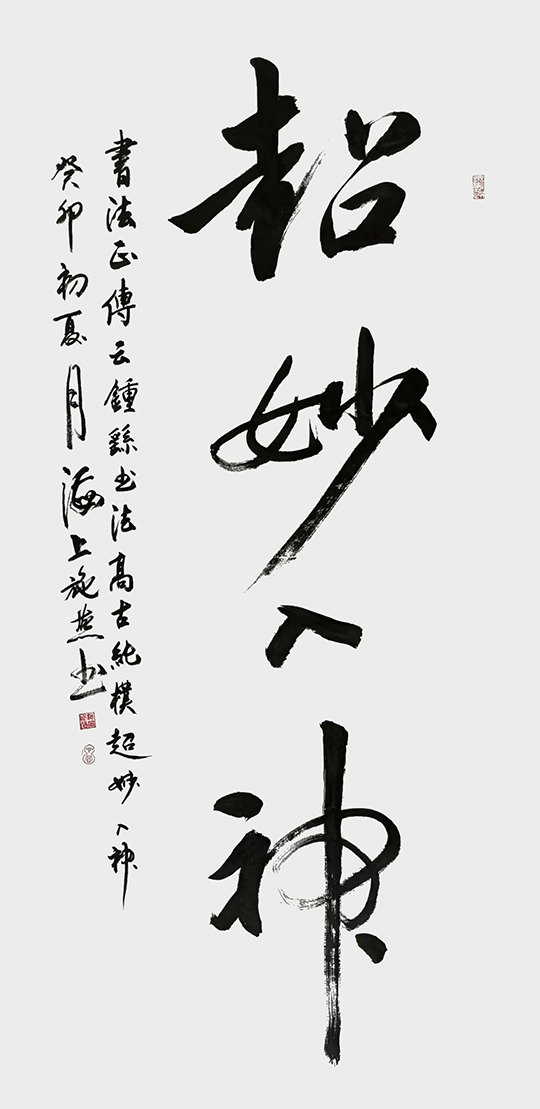 超妙入神
書法正傳云鍾繇书法高古純樸超妙入神
癸卯初夏月海上施燕书